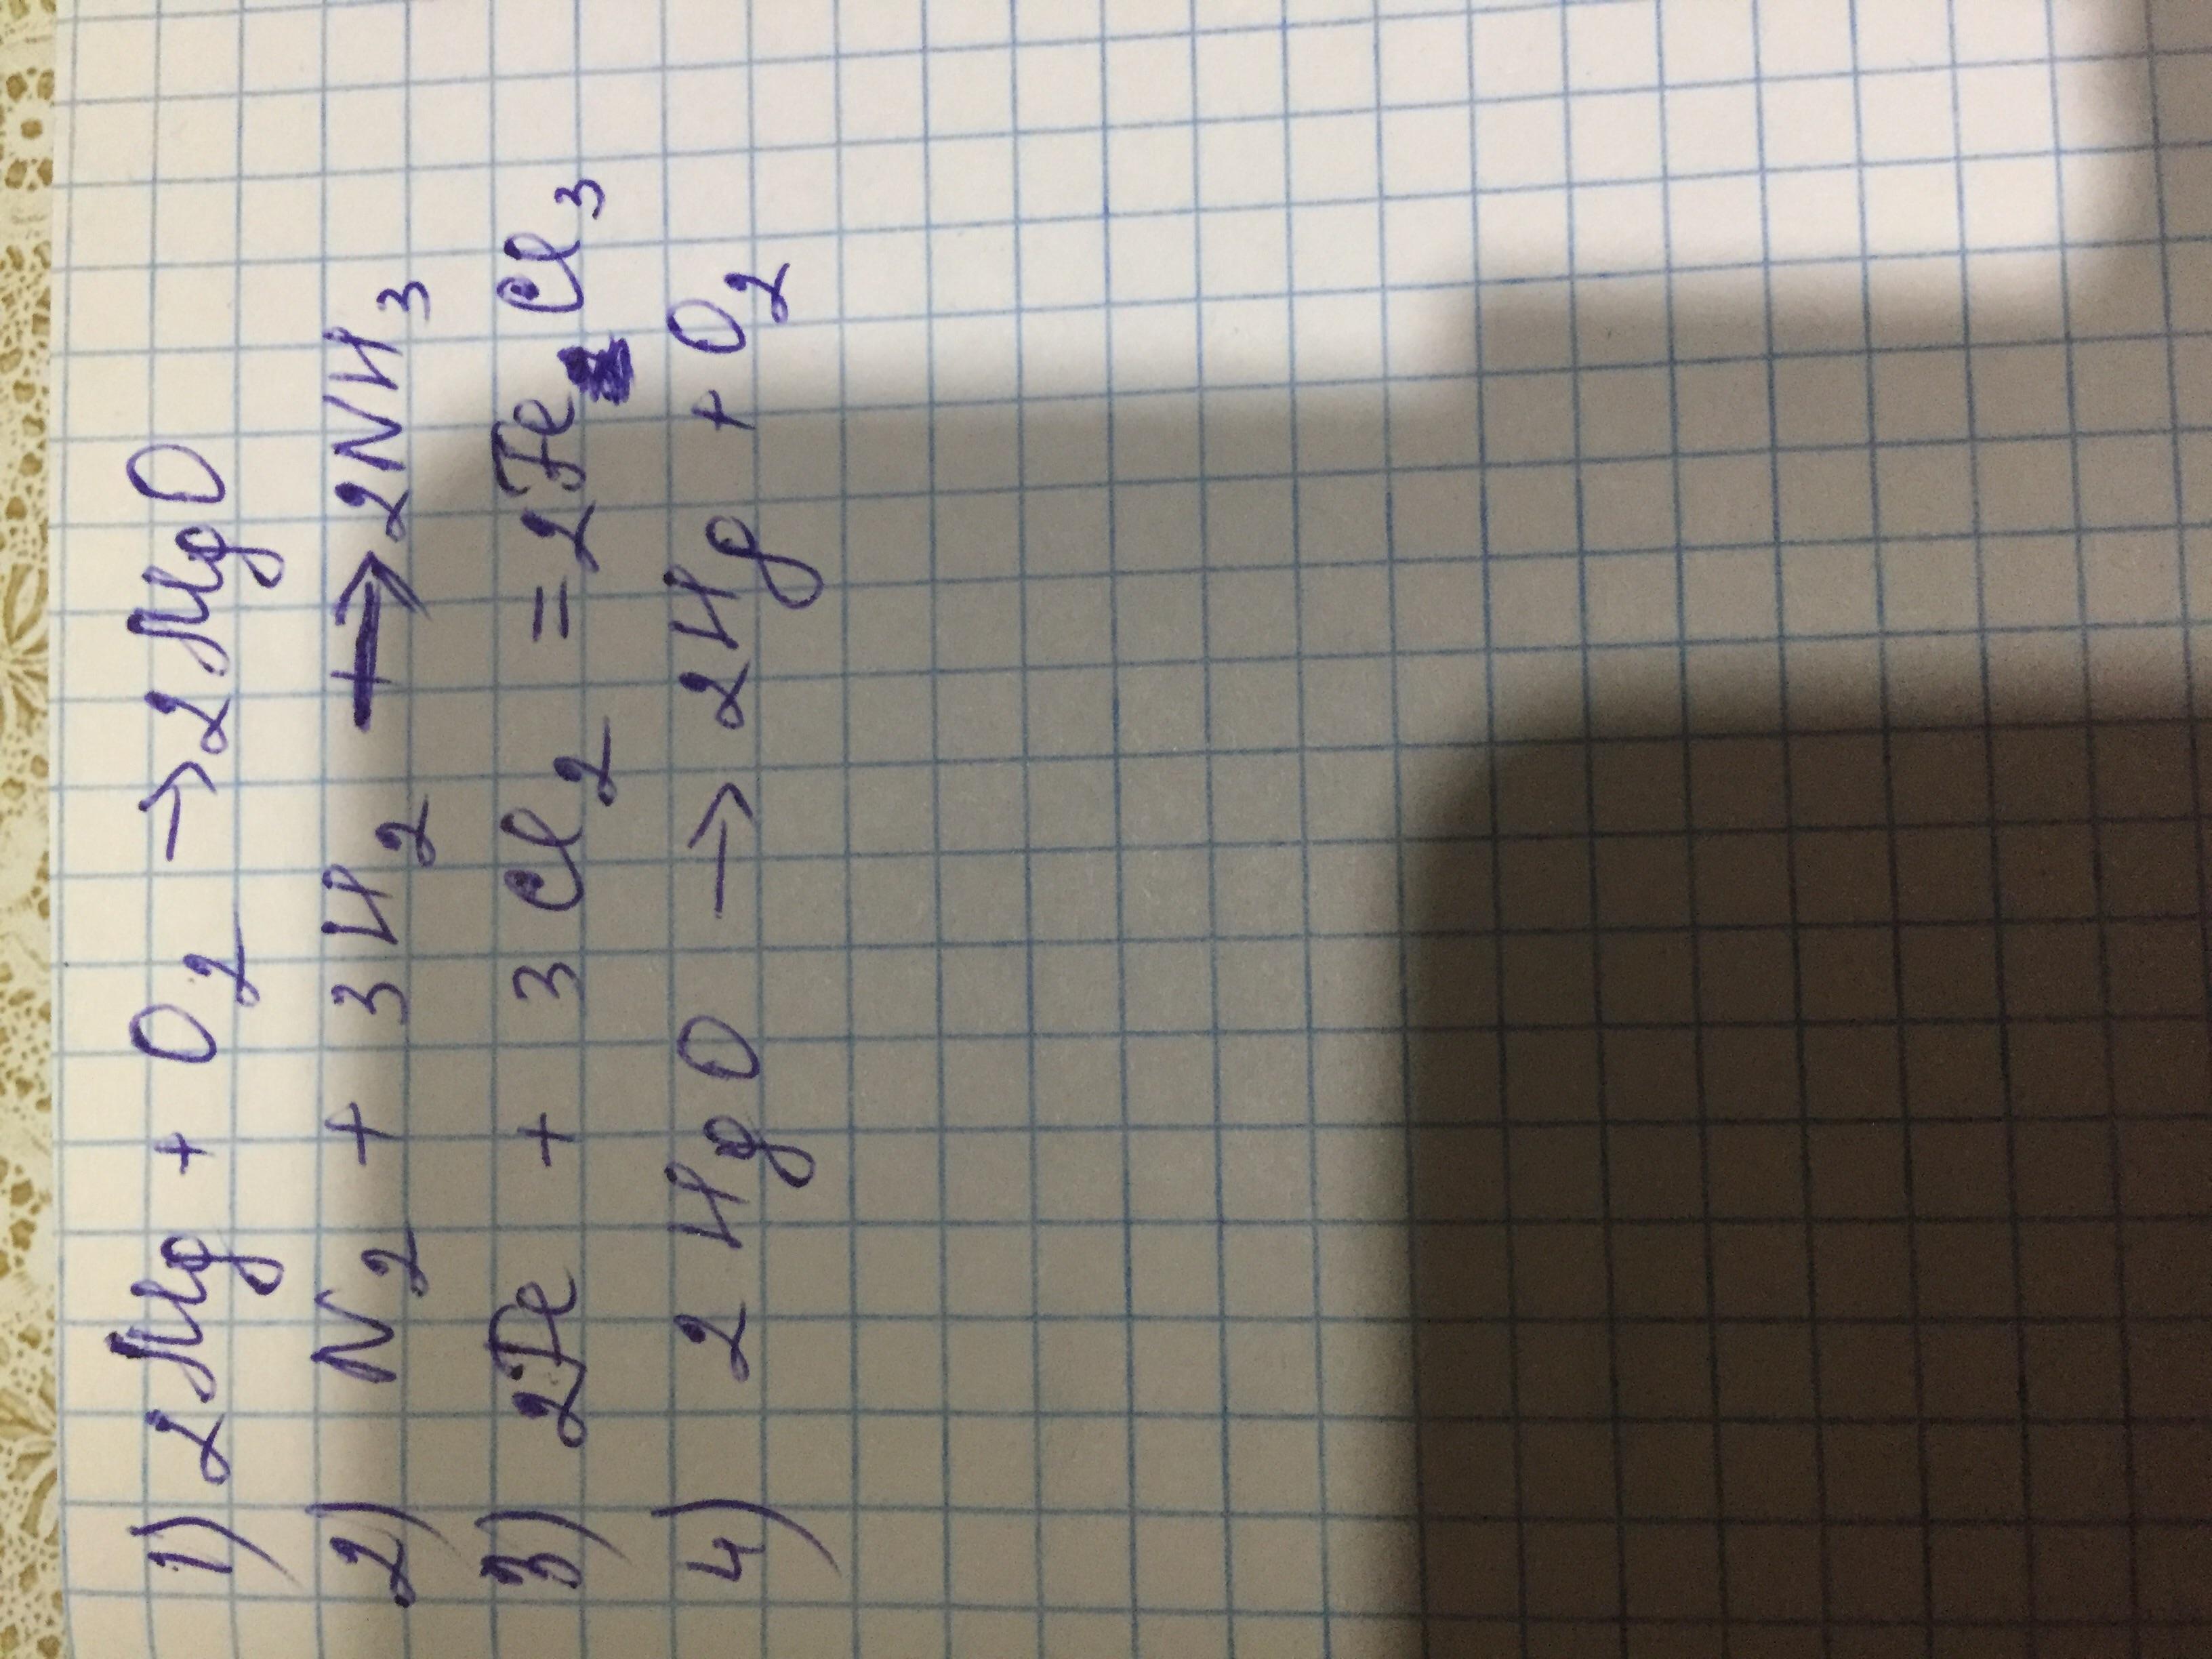 1) 2Mg + O₂ → 2MgO
2) N₂ + 3H₂ → 2NH₃
3) 2Fe + 3Cl₂ = 2FeCl₃
4) 2HgO → 2Hg + O₂